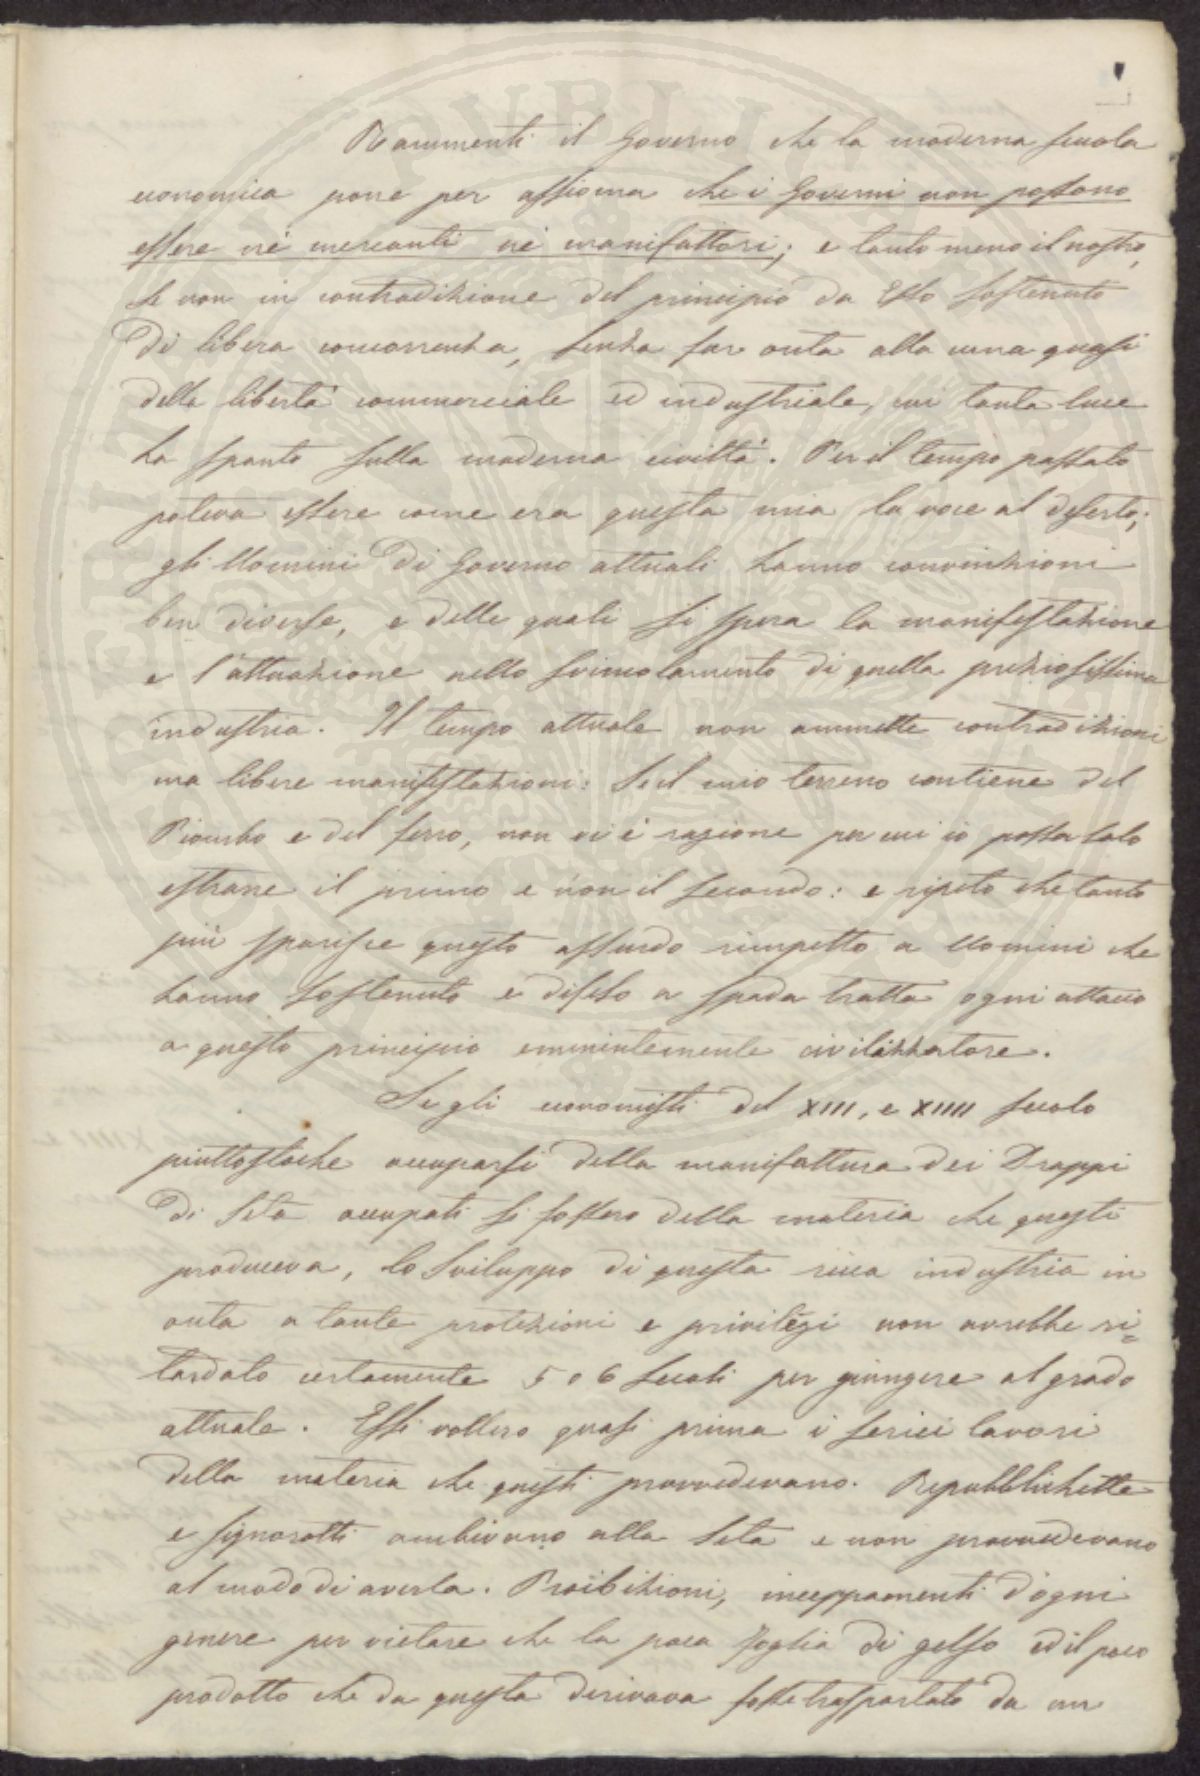 Rammenti il Governo che la moderna scuola
economica pone per assioma che i Governi non possono
essere nè mercanti nè manifattori; e tanto meno il nostro,
se non in contradizione del principio da Esso sostenuto
di libera concorrenza, senza far onta alla cuna quasi
della libertà commerciale ed industriale, cui tanta luce
ha spanto sulla moderna civiltà. Per il tempo passato
poteva essere come era questa mia la voce al deserto;
gli Uomini di Governo attuali hanno convinzioni
ben diverse, e delle quali si spera la manifestazione
e l'attuazione nello svincolamento di quella preziosissima
industria. Il tempo attuale non ammette contradizioni
ma libere manifestazioni: Se il mio terreno contiene del
Piombo e del ferro, non vi è ragione per cui io possa solo
estrarre il primo e non il secondo: e ripeto che tanto
più sparisce questo assurdo rimpetto a Uomini che
hanno sostenuto e difeso a spada tratta ogni attacco
a questo principio eminentemente civilizzatore.
Se gli economisti del XIII, e XIIII secolo
piuttostochè occuparsi della manifattura dei Drappi
di Seta occupati si fossero della materia che questi
produceva, lo Sviluppo di questa ricca industria in
onta a tante protezioni e privilegi non avrebbe ri=
tardato certamente 5 o 6 secoli per giungere al grado
attuale. Essi vollero quasi prima i serici lavori
della materia che questi provvedevano. Repubblichette
e signorotti ambivano alla Seta e non provvedevano
al modo di averla. Proibizioni, inceppamenti d'ogni
genere per vietare che la poca foglia di gelso ed il poco
prodotto che da questa derivava fosse trasportato da un